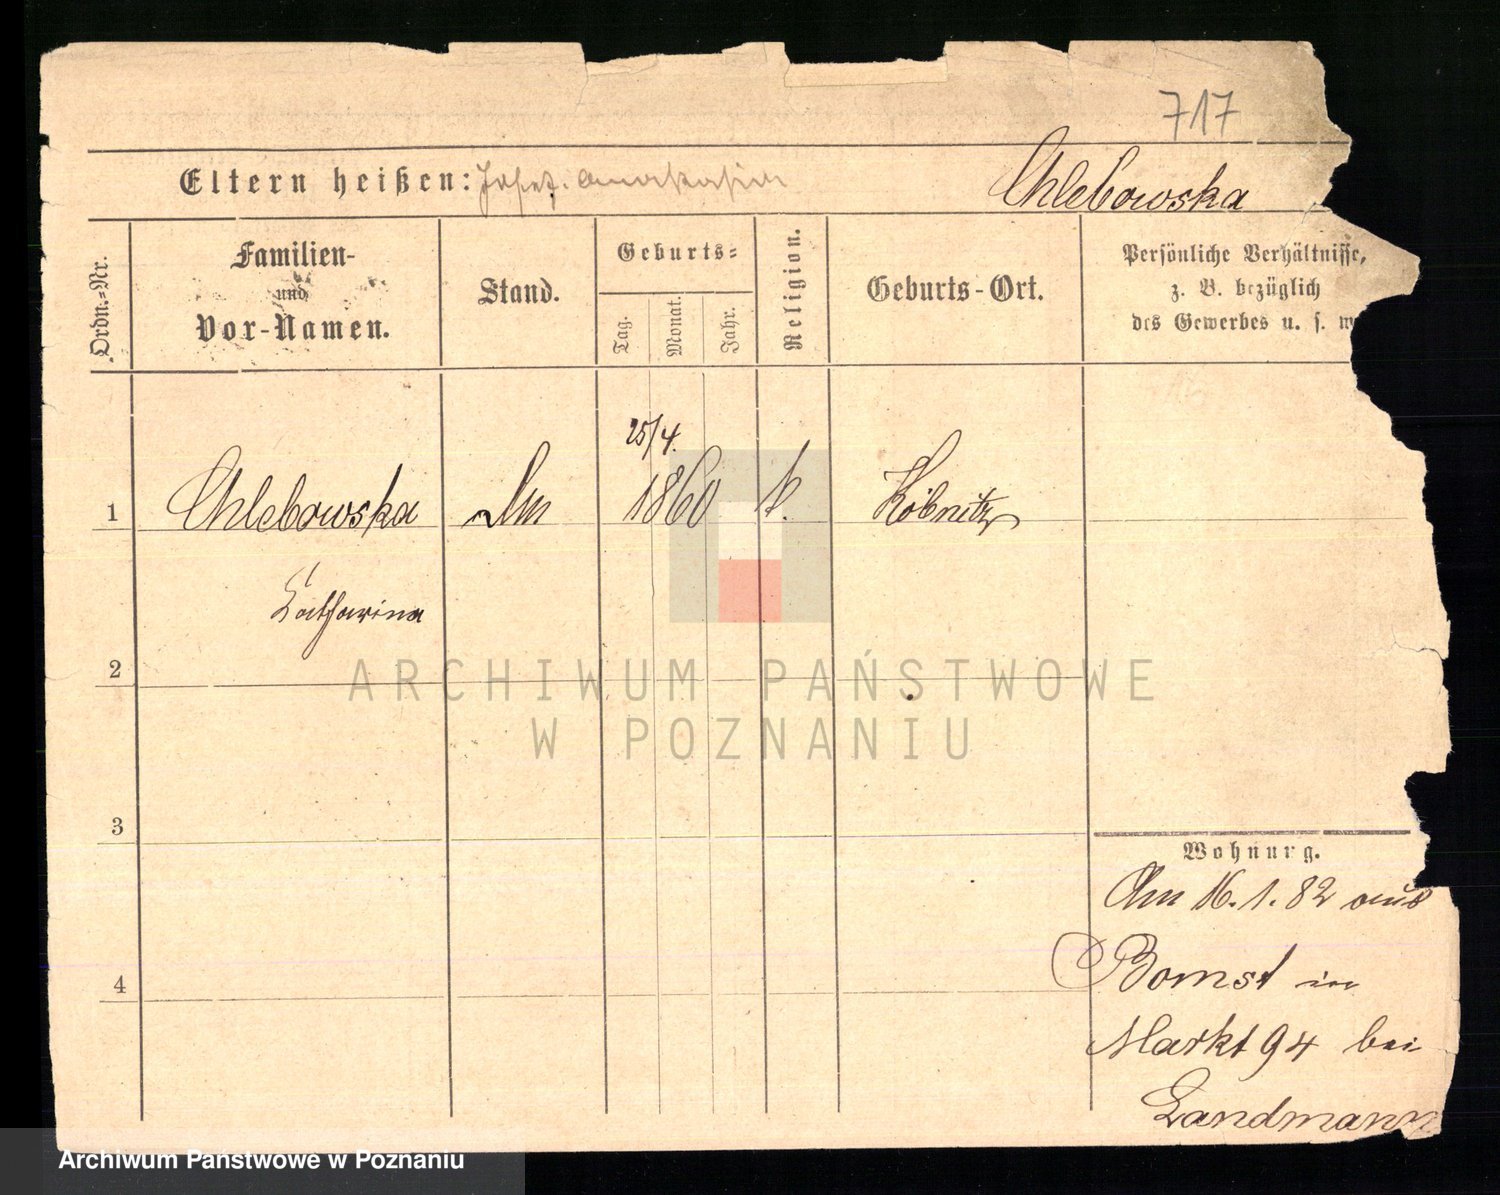 717
Eltern heißen: Josef.
Chlebowska
Ordn.=Nr.
Familien-
und
Vor-Namen.
Stand.
Geburts=
Tag.
Monat.
Jahr.
Religion.
Geburts-Ort.
Persönliche Verhältnisse,
z. B. bezüglich
des Gewerbes u. s. w
25/4.
1 Chlebowska 1860 k. Köbnitz
Catharina
2
3
4
Wohnung.
Am 16. 1. 82 aus
Bomst in
Markt 94 bei
Landmann
ARCHIWUM PAŃSTWOWE
W POZNANIU
Archiwum Państwowe w Poznaniu